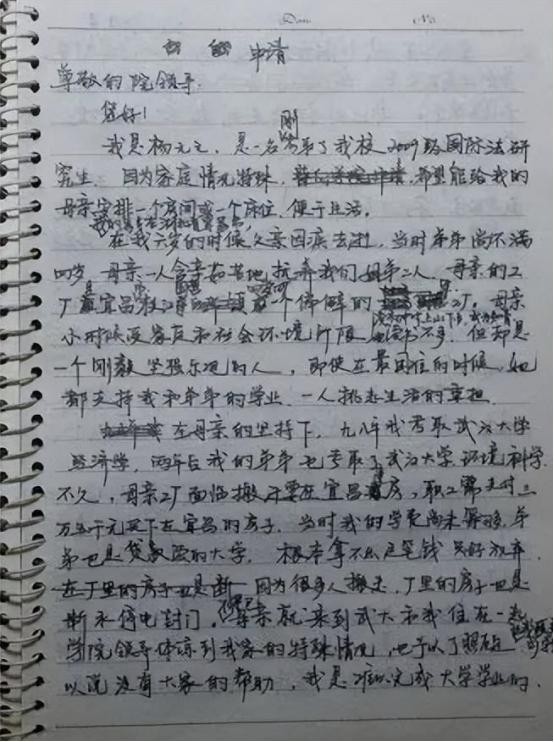 Date No.
申请
尊敬的院领导:
您好!
刚
我是杨元元,是一名考取了我校2009级国际法研
究生。因为家庭情况特殊,希望能给我的
母亲安排一个房间或一个床位,便于生活。
在我六岁的时候父亲因病去逝,当时弟弟尚不满
四岁,母亲一人含辛茹苦地抚养我们姐弟二人。母亲的工
厂是宜昌 一个停解的 工厂。母亲
小时候受家庭和社会环境所限 读书不多,但却是
一个刚毅坚强乐观的人,即使在最困住的时候,她
都支持我和弟弟的学业,一人挑起生活的重担。
在母亲的坚持下,九八年我考取武汉大学
经济学,两年后我的弟弟也考取了武汉大学环境科学
不久,母亲工厂面临搬迁要在宜昌 房,职工需支付三
万五千元买下在宜昌的房子。当时我的学费尚未筹够,弟
弟也是贷款读的大学,根本拿不出这笔钱只好放弃
在厂里的房子也是断 因为很多人搬走,厂里的房子也是
断水停电封门,母亲就来到武大和我住在一起
学院领导体谅到我家的特殊情况,也予以了照顾
以说没有大家的帮助,我是难以完成大学学业的。